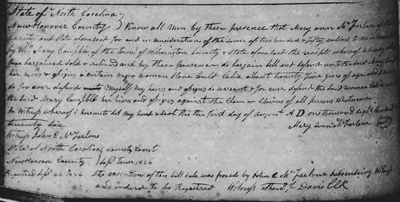 State of North Carolina
New Hanover County ) Know all men by these presence that Mary ann McFarlane
County and State aforesaid for and in consideration of the sum of five hundred & fifty dollars to me in hand
by Mrs Mary Campble of the Town of Wilmington County & State aforesaid the receipt whereof is hereby
have bargained sold & and by these presence do bargain sell out & unto the said Mary
her heirs & assigns a certain negro woman slave Called Celia about twenty five years of age
do for ever defend Myself my heirs and assigns to warrant & for ever defend the said woman
the said Mary Campble her heirs and assigns against the claim or claims of all persons Whatsoever
in Witness whereof I hereunto set my hand & seal this the first day of August A D one thousand eight hundred
twenty six Mary ann McFarlane
Witness John C McFarlane
State of North Carolina County Court
New Hanover County ) Sept term 1826
the execution of this bill sale was proved by John C McFarlane subscribing Witness
and ordered to be Registered Witness Davis Clk